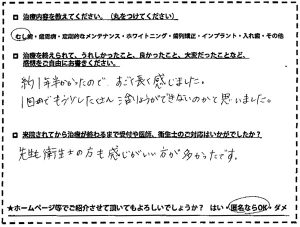 □ 治療内容を教えてください。(丸をつけてください)
むし歯・歯周病・定期的なメンテナンス・ホワイトニング・歯列矯正・インプラント・入れ歯・その他
□ 治療を終えられて、うれしかったこと、良かったこと、大変だったことなど、
感想をご自由にお書きください。
約1年半かかったので、すごく長く感じました。
1回のでもう少したくさん治りょうができないのかと思いました。
□ 来院されてから治療が終わるまで受付や医師、衛生士のご対応はいかがでしたか?
先生も衛生士の方も感じがいい方が多かったです。
★ホームページ等でご紹介させて頂いてもよろしいでしょうか? はい・匿名ならOK・ダメ